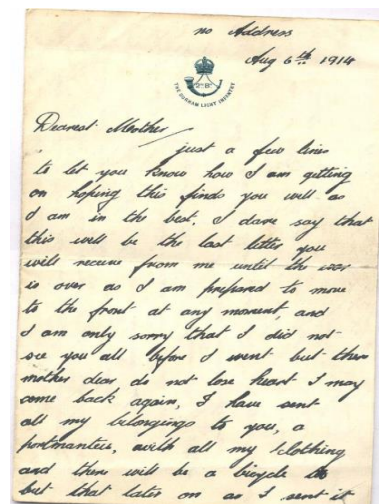 no Address
Aug 6th 1914
2nd Bn
THE DURHAM LIGHT INFANTRY
Dearest Mother
just a few lines
to let you know how I am getting
on hoping this finds you well as
I am in the best. I dare say that
this will be the last letter you
will receive from me until the war
is over as I am prepared to move
to the front at any moment, and
I am only sorry that I did not
see you all before I went but there
mother dear do not lose heart I may
come back again, I have sent
all my belongings to you, a
portmanteu, with all my clothing
and there will be a bicycle
but that later on as I sent it